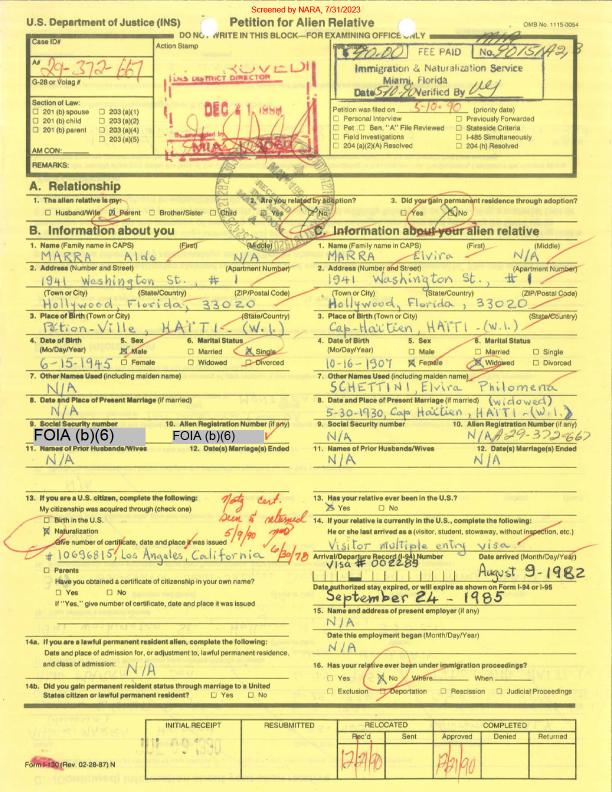 Screened by NARA, 7/31/2023
U.S. Department of Justice (INS) Petition for Alien Relative OMB No. 1115-0054
DO NOT WRITE IN THIS BLOCK—FOR EXAMINING OFFICE ONLY
Case ID#
Action Stamp
A#
29-372-667
G-28 or Volag #
Section of Law:
☐ 201 (b) spouse ☐ 203 (a)(1)
☐ 201 (b) child ☐ 203 (a)(2)
☐ 201 (b) parent ☐ 203 (a)(4)
☐ 203 (a)(5)
AM CON:
REMARKS:
DISTRICT DIRECTOR
DEC 21
MIA
$90.00 FEE PAID No.
Immigration & Naturalization Service
Miami, Florida
Date 5/10.90 Verified By
Petition was filed on 5-10-90 (priority date)
☐ Personal Interview ☐ Previously Forwarded
☐ Pet. ☐ Ben. "A" File Reviewed ☐ Stateside Criteria
☐ Field Investigations ☐ I-485 Simultaneously
☐ 204 (a)(2)(A) Resolved ☐ 204 (h) Resolved
A. Relationship
1. The alien relative is my: 2. Are you related by adoption? 3. Did you gain permanent residence through adoption?
☐ Husband/Wife ☒ Parent ☐ Brother/Sister ☐ Child ☐ Yes ☒ No ☐ Yes ☒ No
B. Information about you
1. Name (Family name in CAPS) (First) (Middle)
MARRA Aldo N/A
2. Address (Number and Street) (Apartment Number)
1941 Washington St., # 1
(Town or City) (State/Country) (ZIP/Postal Code)
Hollywood, Florida, 33020
3. Place of Birth (Town or City) (State/Country)
Pétion-Ville, HAÏTI - (W.I.)
4. Date of Birth (Mo/Day/Yr) 5. Sex 6. Marital Status
6-15-1945 ☒ Male ☐ Female ☐ Married ☒ Single ☐ Widowed ☐ Divorced
7. Other Names Used (including maiden name)
N/A
8. Date and Place of Present Marriage (if married)
N/A
9. Social Security number 10. Alien Registration Number (if any)
FOIA (b)(6) FOIA (b)(6)
11. Names of Prior Husbands/Wives 12. Date(s) Marriage(s) Ended
N/A
13. If you are a U.S. citizen, complete the following:
My citizenship was acquired through (check one)
☐ Birth in the U.S.
☒ Naturalization
Give number of certificate, date and place it was issued
# 10696815, Los Angeles, California 6/30/78
Natz cert.
seen & returned
5/9/90
☐ Parents
Have you obtained a certificate of citizenship in your own name?
☐ Yes ☐ No
If "Yes," give number of certificate, date and place it was issued
14a. If you are a lawful permanent resident alien, complete the following:
Date and place of admission for, or adjustment to, lawful permanent residence,
and class of admission: N/A
14b. Did you gain permanent resident status through marriage to a United
States citizen or lawful permanent resident? ☐ Yes ☐ No
C. Information about your alien relative
1. Name (Family name in CAPS) (First) (Middle)
MARRA Elvira N/A
2. Address (Number and Street) (Apartment Number)
1941 Washington St., # 1
(Town or City) (State/Country) (ZIP/Postal Code)
Hollywood, Florida, 33020
3. Place of Birth (Town or City) (State/Country)
Cap-Haïtien, HAÏTI - (W.I.)
4. Date of Birth (Mo/Day/Yr) 5. Sex 6. Marital Status
10-16-1907 ☐ Male ☒ Female ☐ Married ☐ Single ☒ Widowed ☐ Divorced
7. Other Names Used (including maiden name)
SCHETTINI, Elvira Philomena
8. Date and Place of Present Marriage (if married) (widowed)
5-30-1930, Cap Haïtien, HAÏTI - (W.I.)
9. Social Security number 10. Alien Registration Number (if any)
N/A N/A A29-372-667
11. Names of Prior Husbands/Wives 12. Date(s) Marriage(s) Ended
N/A N/A
13. Has your relative ever been in the U.S.?
☒ Yes ☐ No
14. If your relative is currently in the U.S., complete the following:
He or she last arrived as a (visitor, student, stowaway, without inspection, etc.)
Visitor multiple entry visa.
Arrival/Departure Record (I-94) Number Date arrived (Month/Day/Year)
Visa # 002289 August 9-1982
Date authorized stay expired, or will expire as shown on Form I-94 or I-95
September 24 - 1985
15. Name and address of present employer (if any)
N/A
Date this employment began (Month/Day/Year)
N/A
16. Has your relative ever been under immigration proceedings?
☐ Yes ☒ No Where When
☐ Exclusion ☐ Deportation ☐ Rescission ☐ Judicial Proceedings
INITIAL RECEIPT RESUBMITTED RELOCATED COMPLETED
Rec'd Sent Approved Denied Returned
12/21/90 12/21/90
Form I-130 (Rev. 02-28-87) N